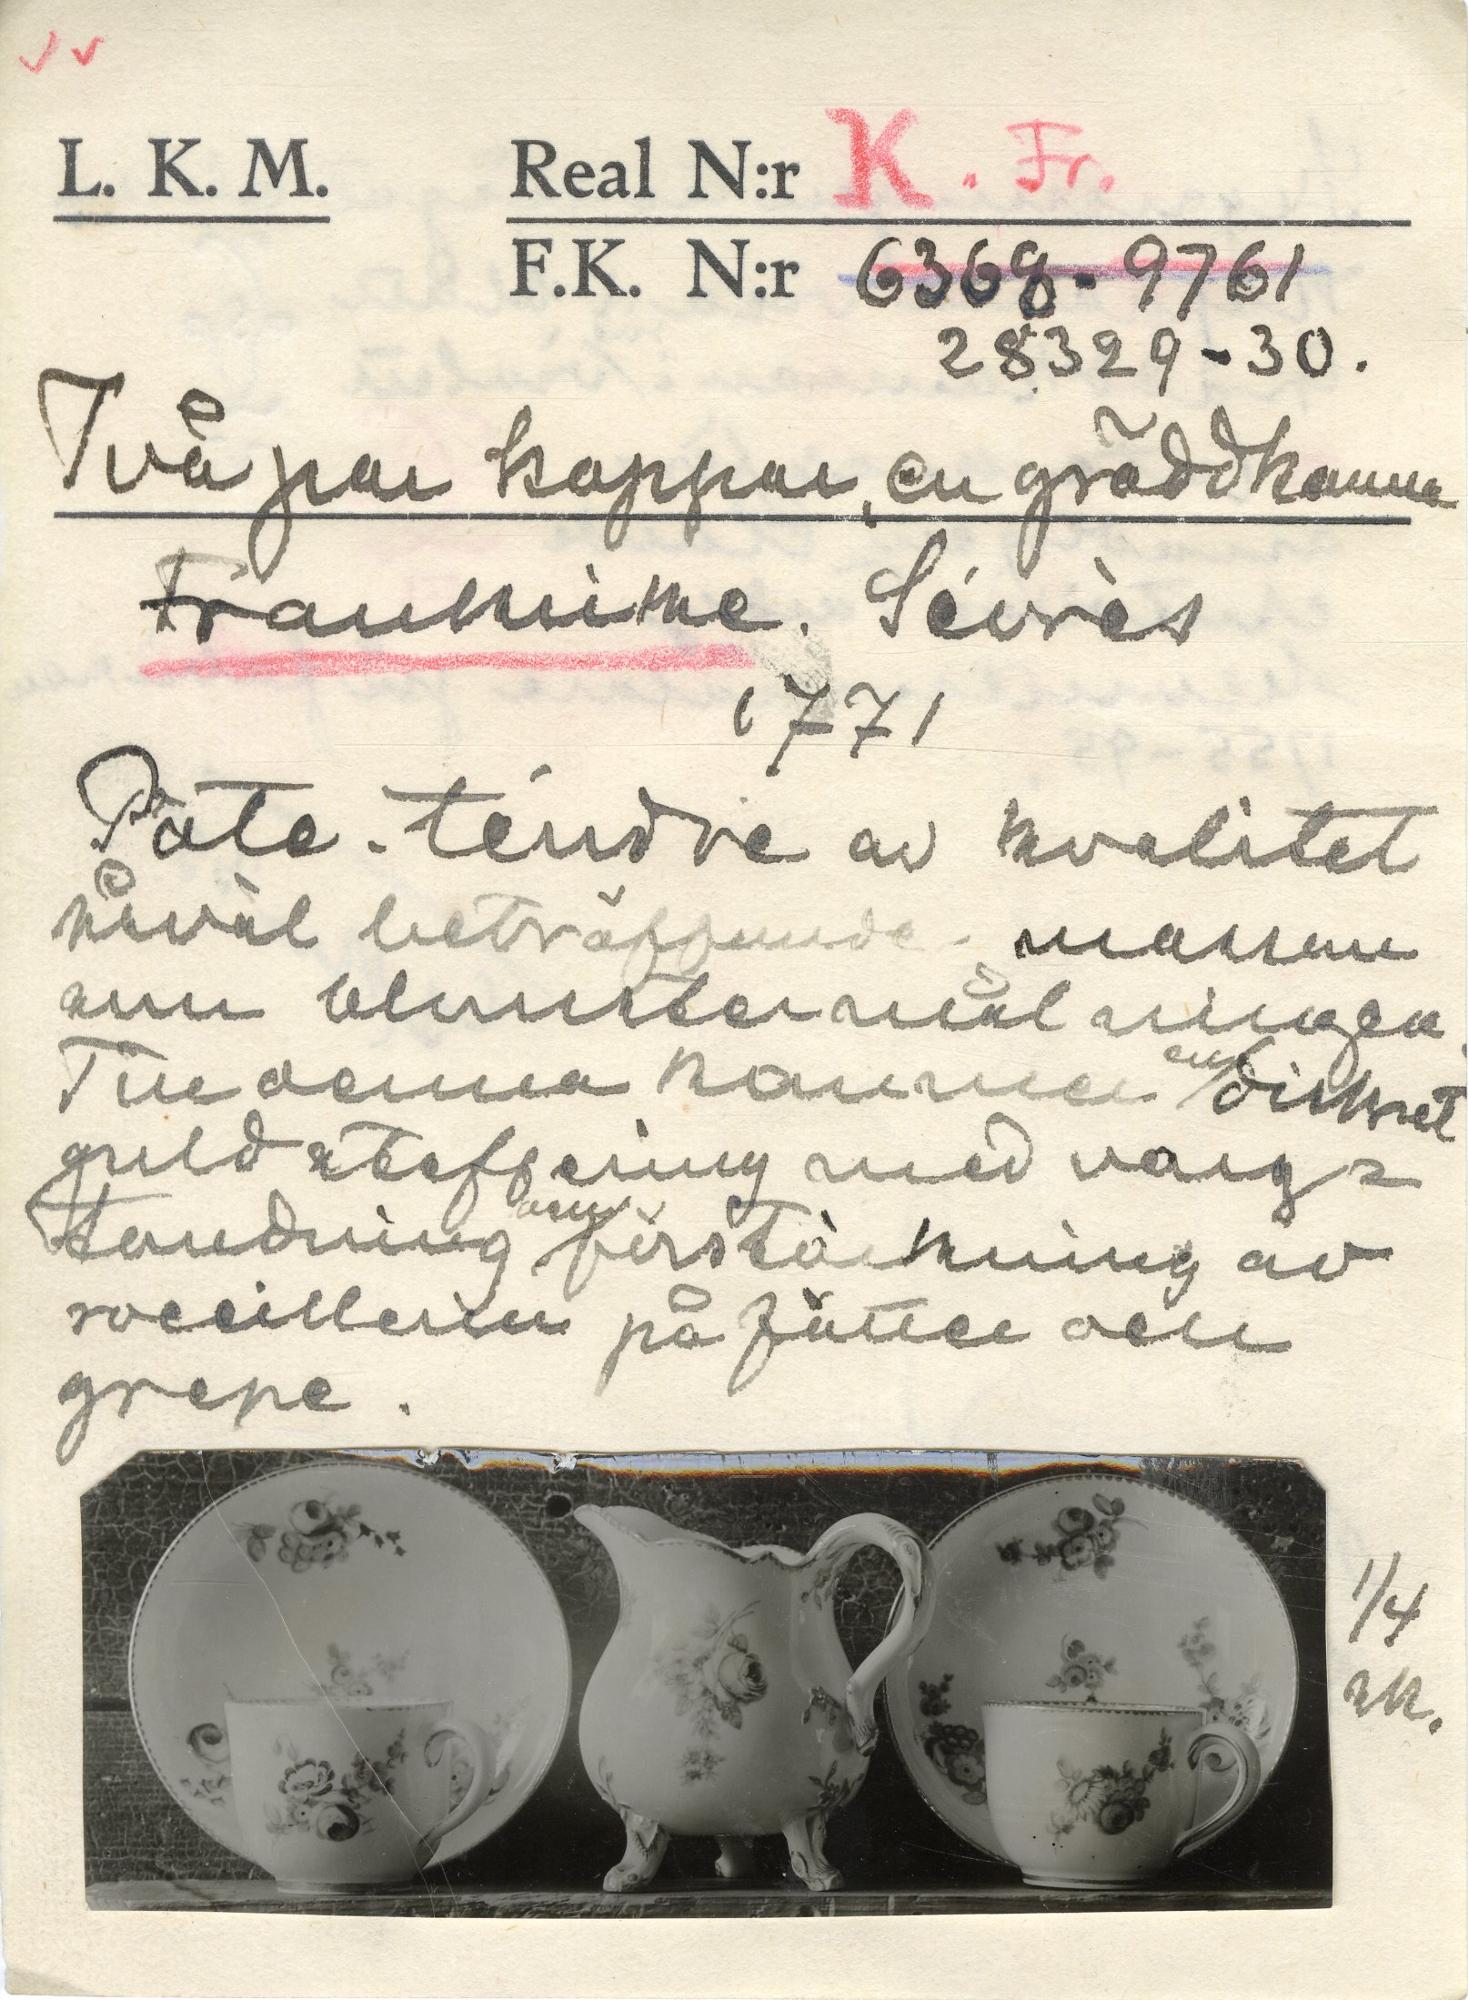 L. K. M.
Real N:r K. Fr.
F.K. N:r 6368-9761
28329-30.
Två par koppar, en gräddkanna
Frankrike. Sévrès
1771
Pâte-téndre av kvalitet
såväl beträffande massan
som blomstermålningen.
Till denna kommer en diskret
guldstaffering med varg=
tandning samt förstärkning av
rocaillerin på fötter och
grepe.
1/4
sk.